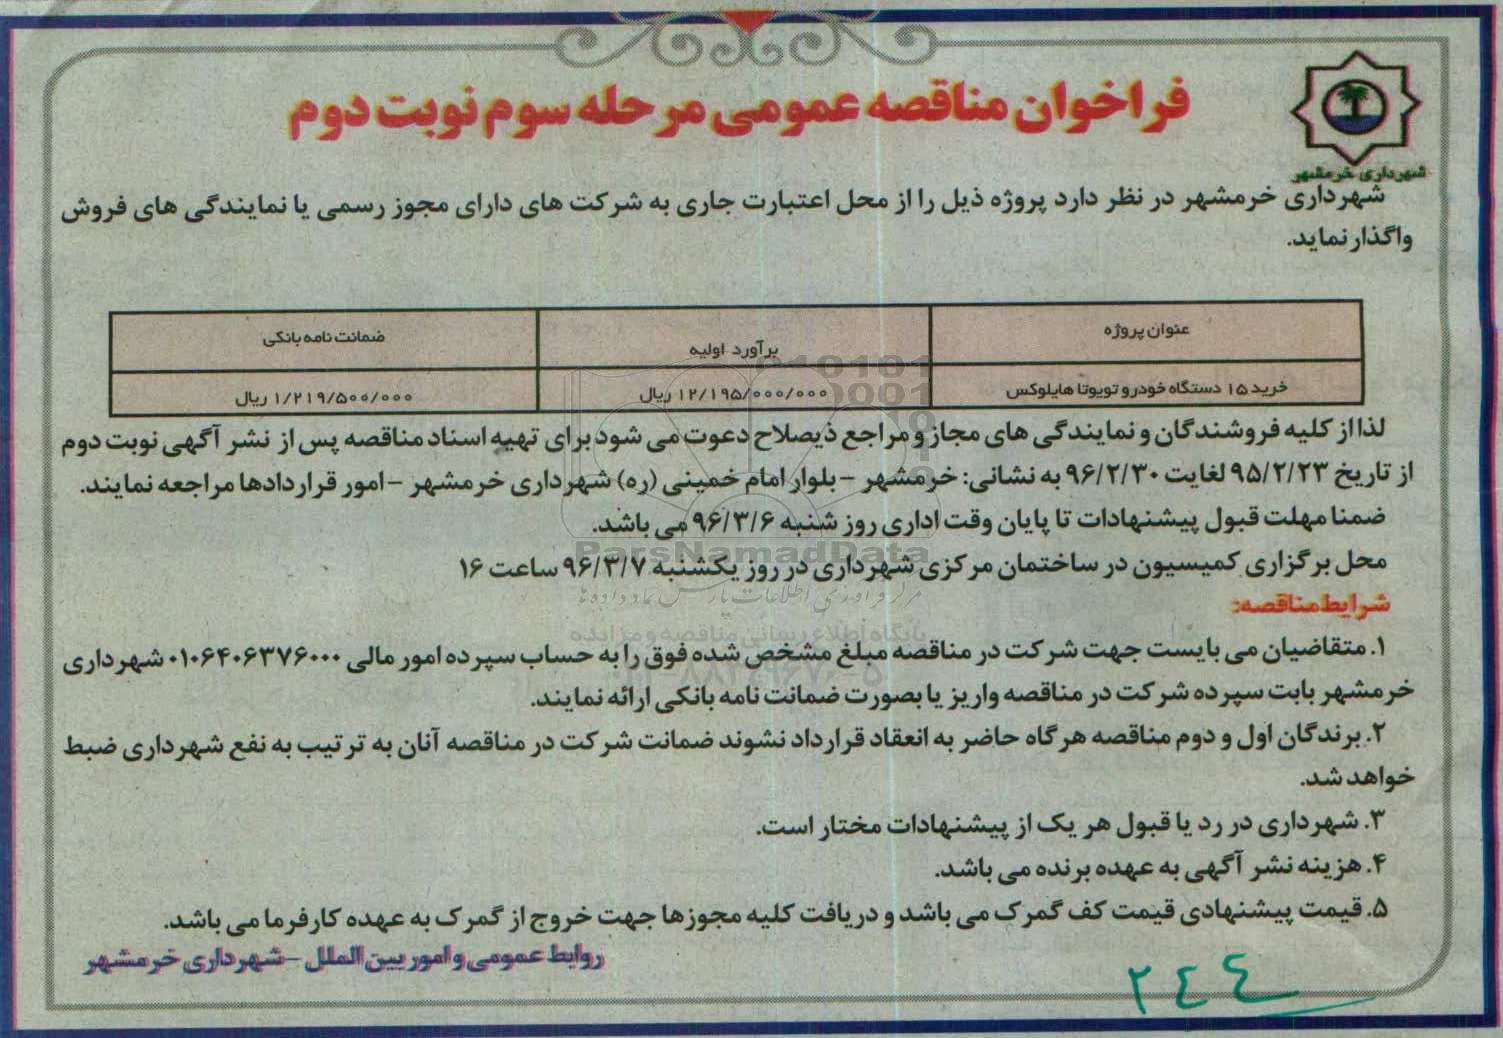 فراخوان مناقصه عمومی مرحله سوم نوبت دوم
شهرداری خرمشهر
شهرداری خرمشهر در نظر دارد پروژه ذیل را از محل اعتبارت جاری به شرکت های دارای مجوز رسمی یا نمایندگی های فروش
واگذار نماید.
عنوان پروژه برآورد اولیه ضمانت نامه بانکی
خرید ۱۵ دستگاه خودرو تویوتا هایلوکس ۱۲/۱۹۵/۰۰۰/۰۰۰ ریال ۱/۲۱۹/۵۰۰/۰۰۰ ریال
لذا از کلیه فروشندگان و نمایندگی های مجاز و مراجع ذیصلاح دعوت می شود برای تهیه اسناد مناقصه پس از نشر آگهی نوبت دوم
از تاریخ ۹۵/۲/۲۳ لغایت ۹۶/۲/۳۰ به نشانی: خرمشهر - بلوار امام خمینی (ره) شهرداری خرمشهر - امور قراردادها مراجعه نمایند.
ضمنا مهلت قبول پیشنهادات تا پایان وقت اداری روز شنبه ۹۶/۳/۶ می باشد.
محل برگزاری کمیسیون در ساختمان مرکزی شهرداری در روز یکشنبه ۹۶/۳/۷ ساعت ۱۶
شرایط مناقصه:
۱. متقاضیان می بایست جهت شرکت در مناقصه مبلغ مشخص شده فوق را به حساب سپرده امور مالی ۰۱۰۶۴۰۶۳۷۶۰۰۰ شهرداری
خرمشهر بابت سپرده شرکت در مناقصه واریز یا بصورت ضمانت نامه بانکی ارائه نمایند.
۲. برندگان اول و دوم مناقصه هرگاه حاضر به انعقاد قرارداد نشوند ضمانت شرکت در مناقصه آنان به ترتیب به نفع شهرداری ضبط
خواهد شد.
۳. شهرداری در رد یا قبول هر یک از پیشنهادات مختار است.
۴. هزینه نشر آگهی به عهده برنده می باشد.
۵. قیمت پیشنهادی قیمت کف گمرک می باشد و دریافت کلیه مجوزها جهت خروج از گمرک به عهده کارفرما می باشد.
روابط عمومی و امور بین الملل - شهرداری خرمشهر
۲۴۴
ParsNamadData
مرکز فرآوری اطلاعات پارس نماد داده ها
پایگاه اطلاع رسانی مناقصه و مزایده